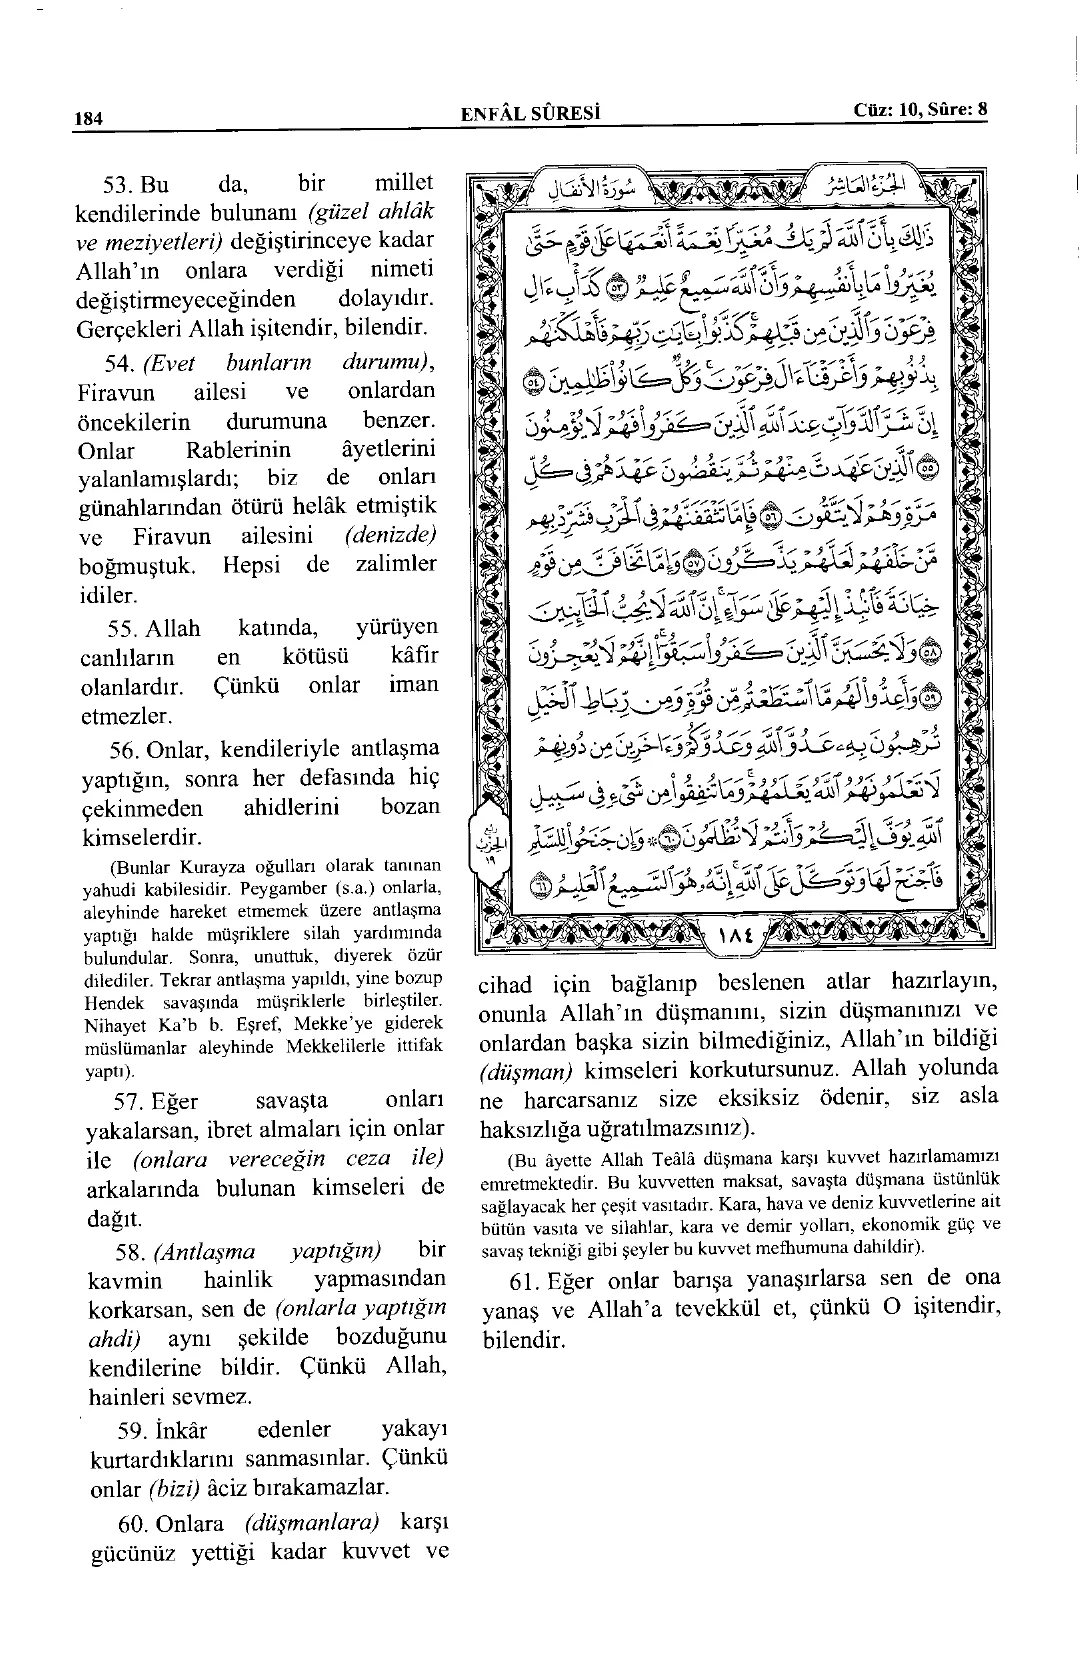 184
ENFÂL SÛRESİ
Cüz: 10, Sûre: 8
53. Bu da, bir millet
kendilerinde bulunanı (güzel ahlâk
ve meziyetleri) değiştirinceye kadar
Allah'ın onlara verdiği nimeti
değiştirmeyeceğinden dolayıdır.
Gerçekleri Allah işitendir, bilendir.
54. (Evet bunların durumu),
Firavun ailesi ve onlardan
öncekilerin durumuna benzer.
Onlar Rablerinin âyetlerini
yalanlamışlardı; biz de onları
günahlarından ötürü helâk etmiştik
ve Firavun ailesini (denizde)
boğmuştuk. Hepsi de zalimler
idiler.
55. Allah katında, yürüyen
canlıların en kötüsü kâfir
olanlardır. Çünkü onlar iman
etmezler.
56. Onlar, kendileriyle antlaşma
yaptığın, sonra her defasında hiç
çekinmeden ahidlerini bozan
kimselerdir.
(Bunlar Kurayza oğulları olarak tanınan
yahudi kabilesidir. Peygamber (s.a.) onlarla,
aleyhinde hareket etmemek üzere antlaşma
yaptığı halde müşriklere silah yardımında
bulundular. Sonra, unuttuk, diyerek özür
dilediler. Tekrar antlaşma yapıldı, yine bozup
Hendek savaşında müşriklerle birleştiler.
Nihayet Ka'b b. Eşref, Mekke'ye giderek
müslümanlar aleyhinde Mekkelilerle ittifak
yaptı).
57. Eğer savaşta onları
yakalarsan, ibret almaları için onlar
ile (onlara vereceğin ceza ile)
arkalarında bulunan kimseleri de
dağıt.
58. (Antlaşma yaptığın) bir
kavmin hainlik yapmasından
korkarsan, sen de (onlarla yaptığın
ahdi) aynı şekilde bozduğunu
kendilerine bildir. Çünkü Allah,
hainleri sevmez.
59. İnkâr edenler yakayı
kurtardıklarını sanmasınlar. Çünkü
onlar (bizi) âciz bırakamazlar.
60. Onlara (düşmanlara) karşı
gücünüz yettiği kadar kuvvet ve
سُورَةُ الْأَنْفَالِ
الْجُزْءُ الْعَاشِرُ
ذٰلِكَ بِأَنَّ اللّٰهَ لَمْ يَكُ مُغَيِّرًا نِعْمَةً أَنْعَمَهَا عَلٰى قَوْمٍ حَتّٰى
يُغَيِّرُوا مَا بِأَنْفُسِهِمْ وَأَنَّ اللّٰهَ سَمِيعٌ عَلِيمٌ ۝٥٣ كَدَأْبِ اٰلِ
فِرْعَوْنَ وَالَّذِينَ مِنْ قَبْلِهِمْ كَذَّبُوا بِاٰيَاتِ رَبِّهِمْ فَأَهْلَكْنَاهُمْ
بِذُنُوبِهِمْ وَأَغْرَقْنَا اٰلَ فِرْعَوْنَ وَكُلٌّ كَانُوا ظَالِمِينَ ۝٥٤
إِنَّ شَرَّ الدَّوَابِّ عِنْدَ اللّٰهِ الَّذِينَ كَفَرُوا فَهُمْ لَا يُؤْمِنُونَ
۝٥٥ الَّذِينَ عَاهَدْتَ مِنْهُمْ ثُمَّ يَنْقُضُونَ عَهْدَهُمْ فِي كُلِّ
مَرَّةٍ وَهُمْ لَا يَتَّقُونَ ۝٥٦ فَإِمَّا تَثْقَفَنَّهُمْ فِي الْحَرْبِ فَشَرِّدْ بِهِمْ
مَنْ خَلْفَهُمْ لَعَلَّهُمْ يَذَّكَّرُونَ ۝٥٧ وَإِمَّا تَخَافَنَّ مِنْ قَوْمٍ
خِيَانَةً فَانْبِذْ إِلَيْهِمْ عَلٰى سَوَاءٍ إِنَّ اللّٰهَ لَا يُحِبُّ الْخَائِنِينَ
۝٥٨ وَلَا يَحْسَبَنَّ الَّذِينَ كَفَرُوا سَبَقُوا إِنَّهُمْ لَا يُعْجِزُونَ
۝٥٩ وَأَعِدُّوا لَهُمْ مَا اسْتَطَعْتُمْ مِنْ قُوَّةٍ وَمِنْ رِبَاطِ الْخَيْلِ
تُرْهِبُونَ بِهِ عَدُوَّ اللّٰهِ وَعَدُوَّكُمْ وَاٰخَرِينَ مِنْ دُونِهِمْ
لَا تَعْلَمُونَهُمُ اللّٰهُ يَعْلَمُهُمْ وَمَا تُنْفِقُوا مِنْ شَيْءٍ فِي سَبِيلِ
اللّٰهِ يُوَفَّ إِلَيْكُمْ وَأَنْتُمْ لَا تُظْلَمُونَ ۝٦٠ * وَإِنْ جَنَحُوا لِلسَّلْمِ
فَاجْنَحْ لَهَا وَتَوَكَّلْ عَلَى اللّٰهِ إِنَّهُ هُوَ السَّمِيعُ الْعَلِيمُ ۝٦١
ربع
الحزب
١٩
١٨٤
cihad için bağlanıp beslenen atlar hazırlayın,
onunla Allah'ın düşmanını, sizin düşmanınızı ve
onlardan başka sizin bilmediğiniz, Allah'ın bildiği
(düşman) kimseleri korkutursunuz. Allah yolunda
ne harcarsanız size eksiksiz ödenir, siz asla
haksızlığa uğratılmazsınız).
(Bu âyette Allah Teâlâ düşmana karşı kuvvet hazırlamamızı
emretmektedir. Bu kuvvetten maksat, savaşta düşmana üstünlük
sağlayacak her çeşit vasıtadır. Kara, hava ve deniz kuvvetlerine ait
bütün vasıta ve silahlar, kara ve demir yolları, ekonomik güç ve
savaş tekniği gibi şeyler bu kuvvet mefhumuna dahildir).
61. Eğer onlar barışa yanaşırlarsa sen de ona
yanaş ve Allah'a tevekkül et, çünkü O işitendir,
bilendir.